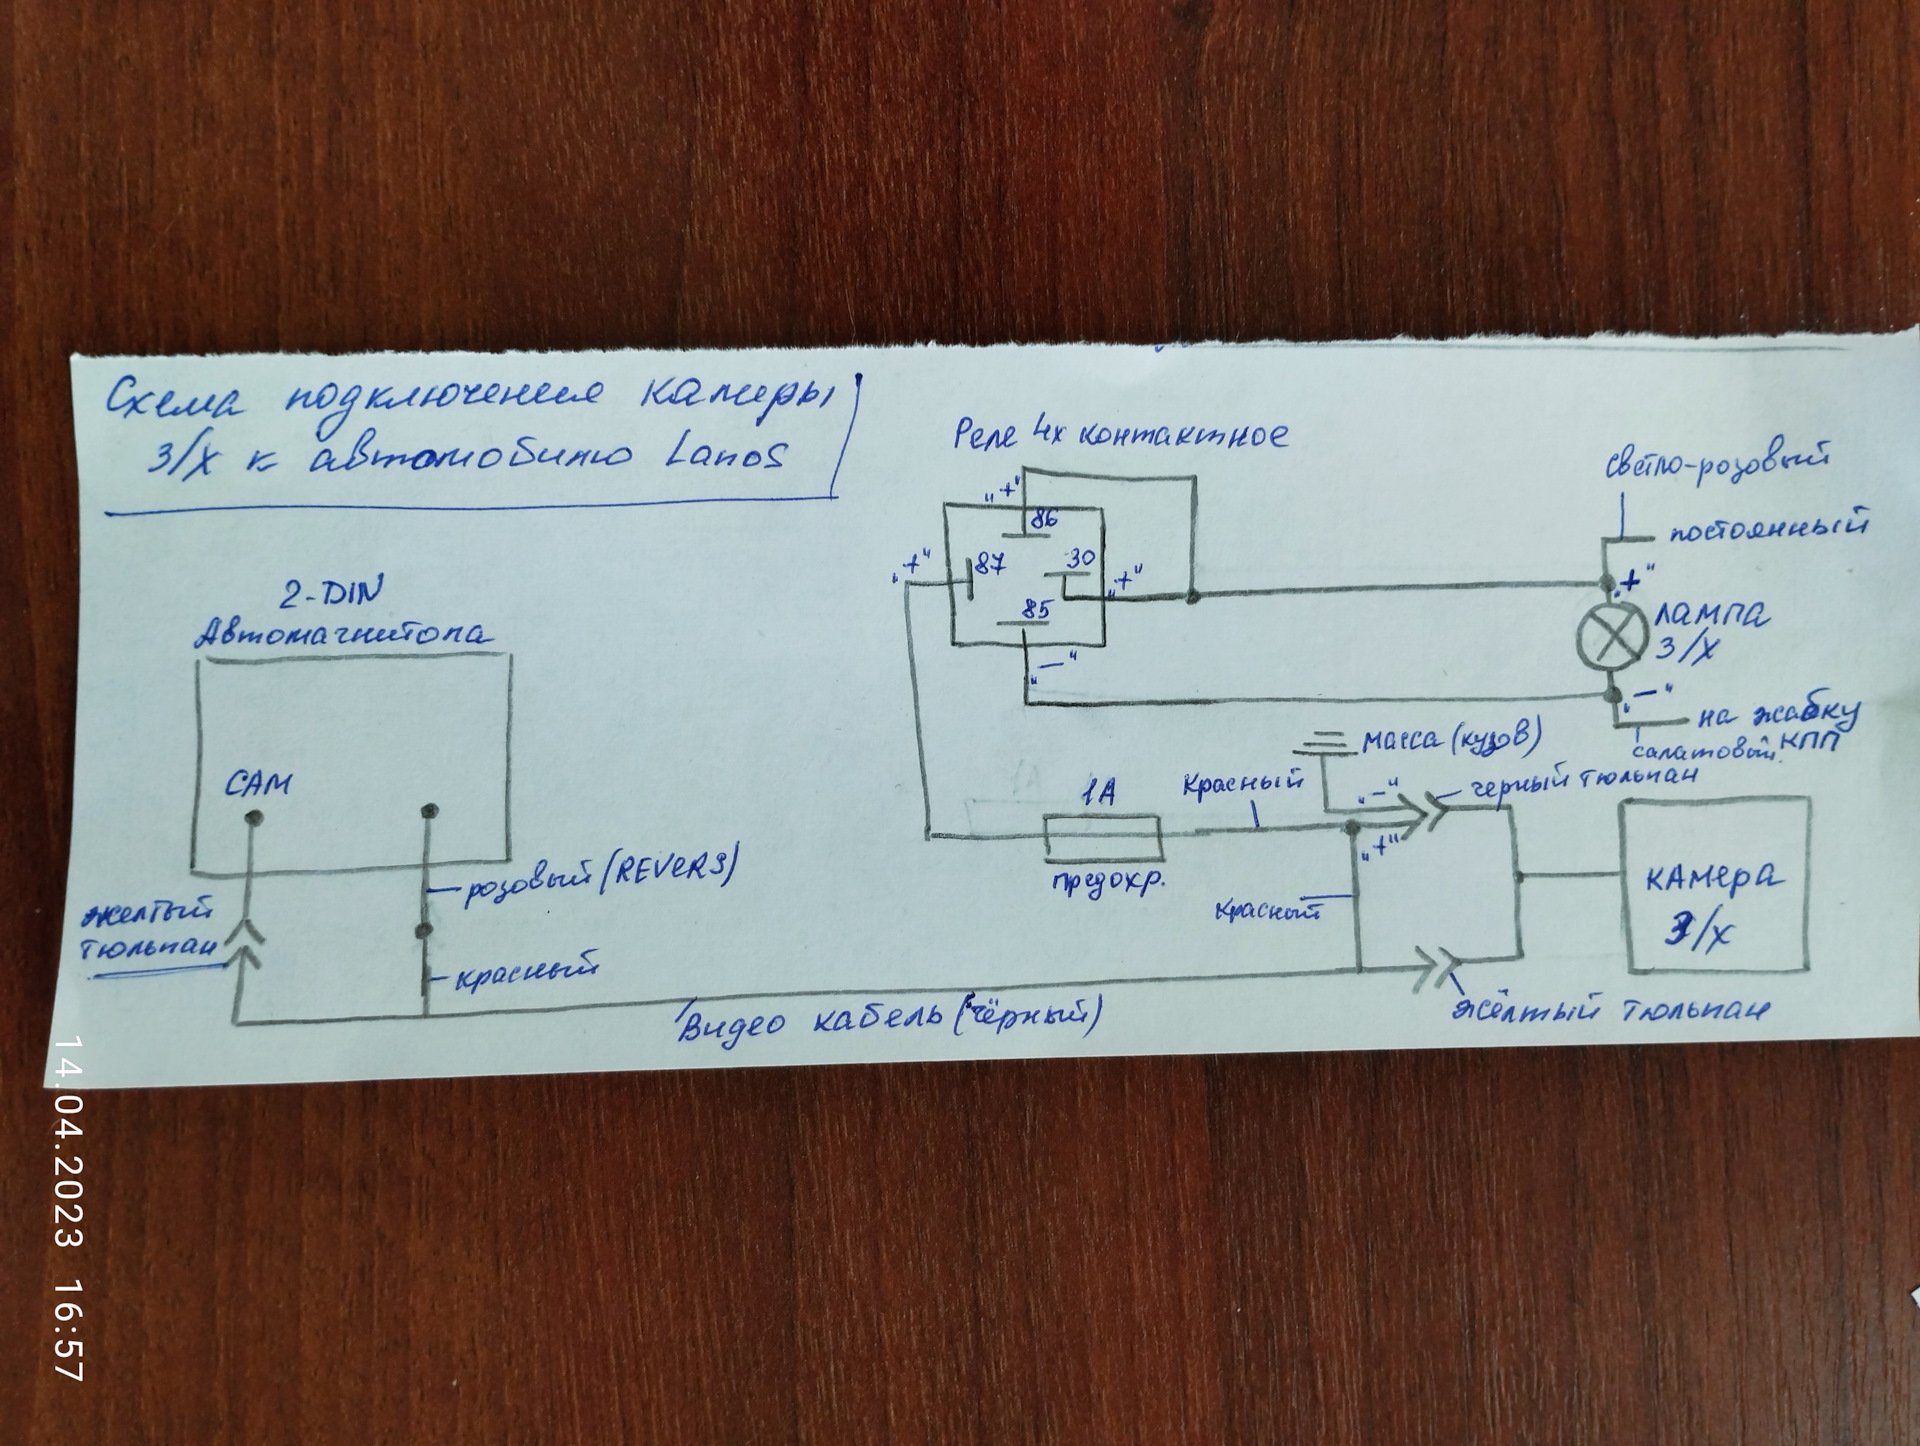 Схема подключения камеры
З/Х к автомобилю Lanos
Реле 4х контактное
светло-розовый
постоянный
"+"
86
"+"
87
30
"+"
85
"—"
"+"
лампа
З/Х
"—"
на жабку
КПП
салатовый
2-DIN
Автомагнитола
CAM
розовый (REVERS)
желтый
тюльпан
красный
Видео кабель (чёрный)
1А
предохр.
Красный
масса (кузов)
"—"
черный тюльпан
"+"
красный
камера
З/Х
жёлтый тюльпан
14.04.2023 16:57